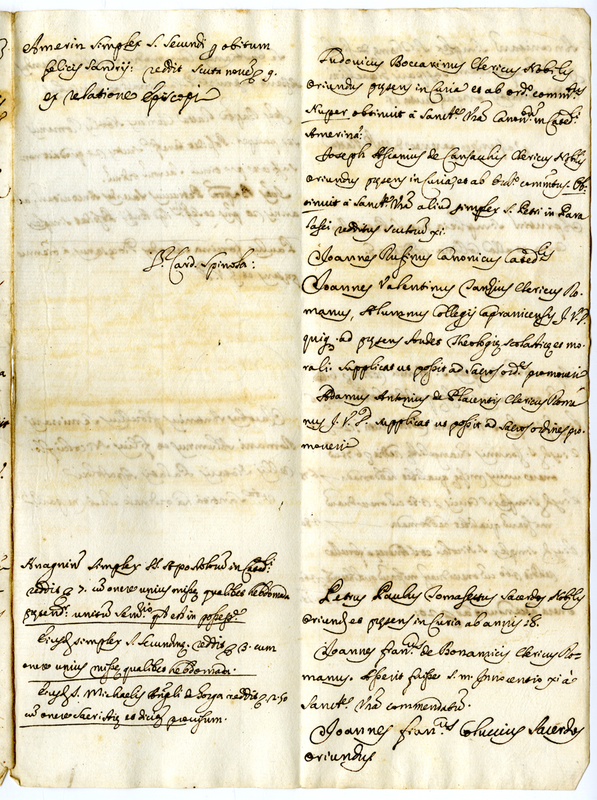 Amerin simplex S. Secundi p obitum
felicis Sandris: reddit scuta novē 9.
ex relatione Episcopi
D. Card. Spinola:
Anagnin simplex SS. Apostolorū in Cated:
reddit 7. cū onere unius missę qualibet hebdomada
simplex S. Secundinę reddit 3. cum
onere unius missę qualibet hebdomada
S. Michaelis Angeli de reddit 2:50
cū onere Sacristię et
Ludovicus Boccarinus Clericus Nobilis
oriundus pręsens in Curia et ab ord.
Nuper obtinuit à Sanct.e Vrā Canon.m in Cated:
Amerina:
Joseph Ascanius de Clericus Nobilis
oriundus pręsens in Curia, et ab Ord. Ob-
tinuit à Sanct.e Vrā aliud simplex S. Petri in
redditus scutorū xi.
Joannes Rufinus Canonicus Cated.lis
Joannes Valentinus Clericus Ro-
manus, Alumnus Collegij Capranicensis J.V.D.
quiq. ad pręsens studet Theologię scolasticę et mo-
rali. Supplicat ut possit ad sacros ord.es promoveri
Adamus Antonius de Placentis Clericus Roma-
nus J.V.D. supplicat ut possit ad sacros ordines pro-
moveri
Petrus Paulus Tomassettus Sacerdos Nobilis
oriundus et pręsens in Curia ab annis 18.
Joannes Fran.cus de Bonamicis Clericus Ro-
manus. Asserit fuisse s.m. Innocentio xi à
Sanct.e Vrā commendatū.
Joannes Fran.cus Colucius Sacerdos
oriundus